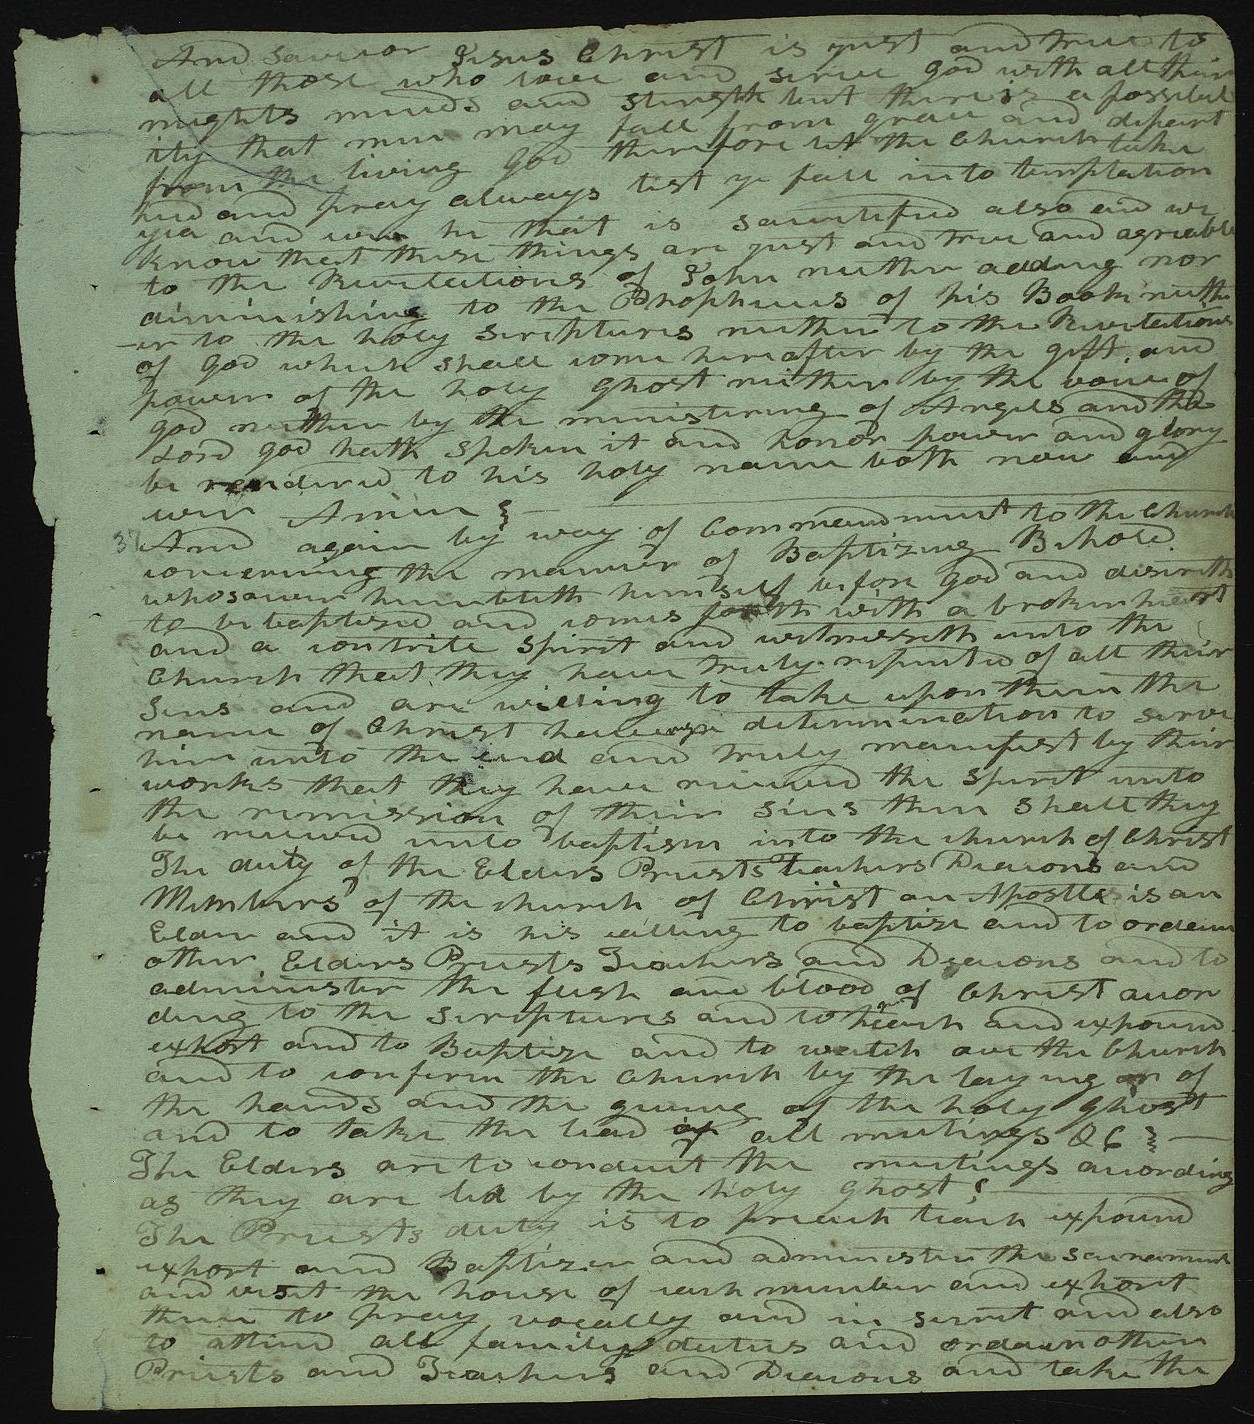 And Savior Jesus Christ is just and true to
all those who love and serve god with all their
mights minds and strength but there is a possibil
ity that men may fall from grace and depart
from the living god therefore let the Church take
hed and pray always lest ye fall into temptation
yea and even he that is sanctified also and we
know that these things are just and true and agreable
to the Revelations of John neither adding nor
diminishing to the Prophecies of his Book neith
er to the holy Scriptures neither to the Revelations
of god which shall come hereafter by the gift and
power of the holy ghost neither by the voice of
god neither by the ministering of Angels and the
Lord god hath spoken it and honor power and glory
be rendered to his holy name both now and
ever Amen
37 And again by way of Commandment to the Church
concerning the manner of Baptizing Behold
whosoever humbleth himself before god and desireth
to be baptized and comes forth with a broken heart
and a contrite spirit and witnesseth unto the
Church that they have truly repented of all their
sins and are willing to take upon them the
name of Christ having a determination to serve
him unto the end and truly manifest by their
works that they have received the spirit unto
the remission of their sins then shall they
be received unto baptism into the church of Christ
The duty of the Elders Priests Teachers Deacons and
Members of the church of Christ an Apostle is an
Elder and it is his calling to baptize and to ordain
other Elders Priests Teachers and Deacons and to
administer the flesh and blood of Christ accor
ding to the scriptures and to teach and expound
exhort and to Baptize and to watch over the Church
and to confirm the church by the laying on of
the hands and the giving of the holy ghost
and to take the lead of all meetings &C
The Elders are to conduct the meetings according
as they are led by the holy ghost
The Priests duty is to preach teach expound
exhort and Baptize and administer the sacrament
and visit the house of each member and exhort
them to pray vocally and in secret and also
to attend all family duties and ordain other
Priests and Teachers and Deacons and take the